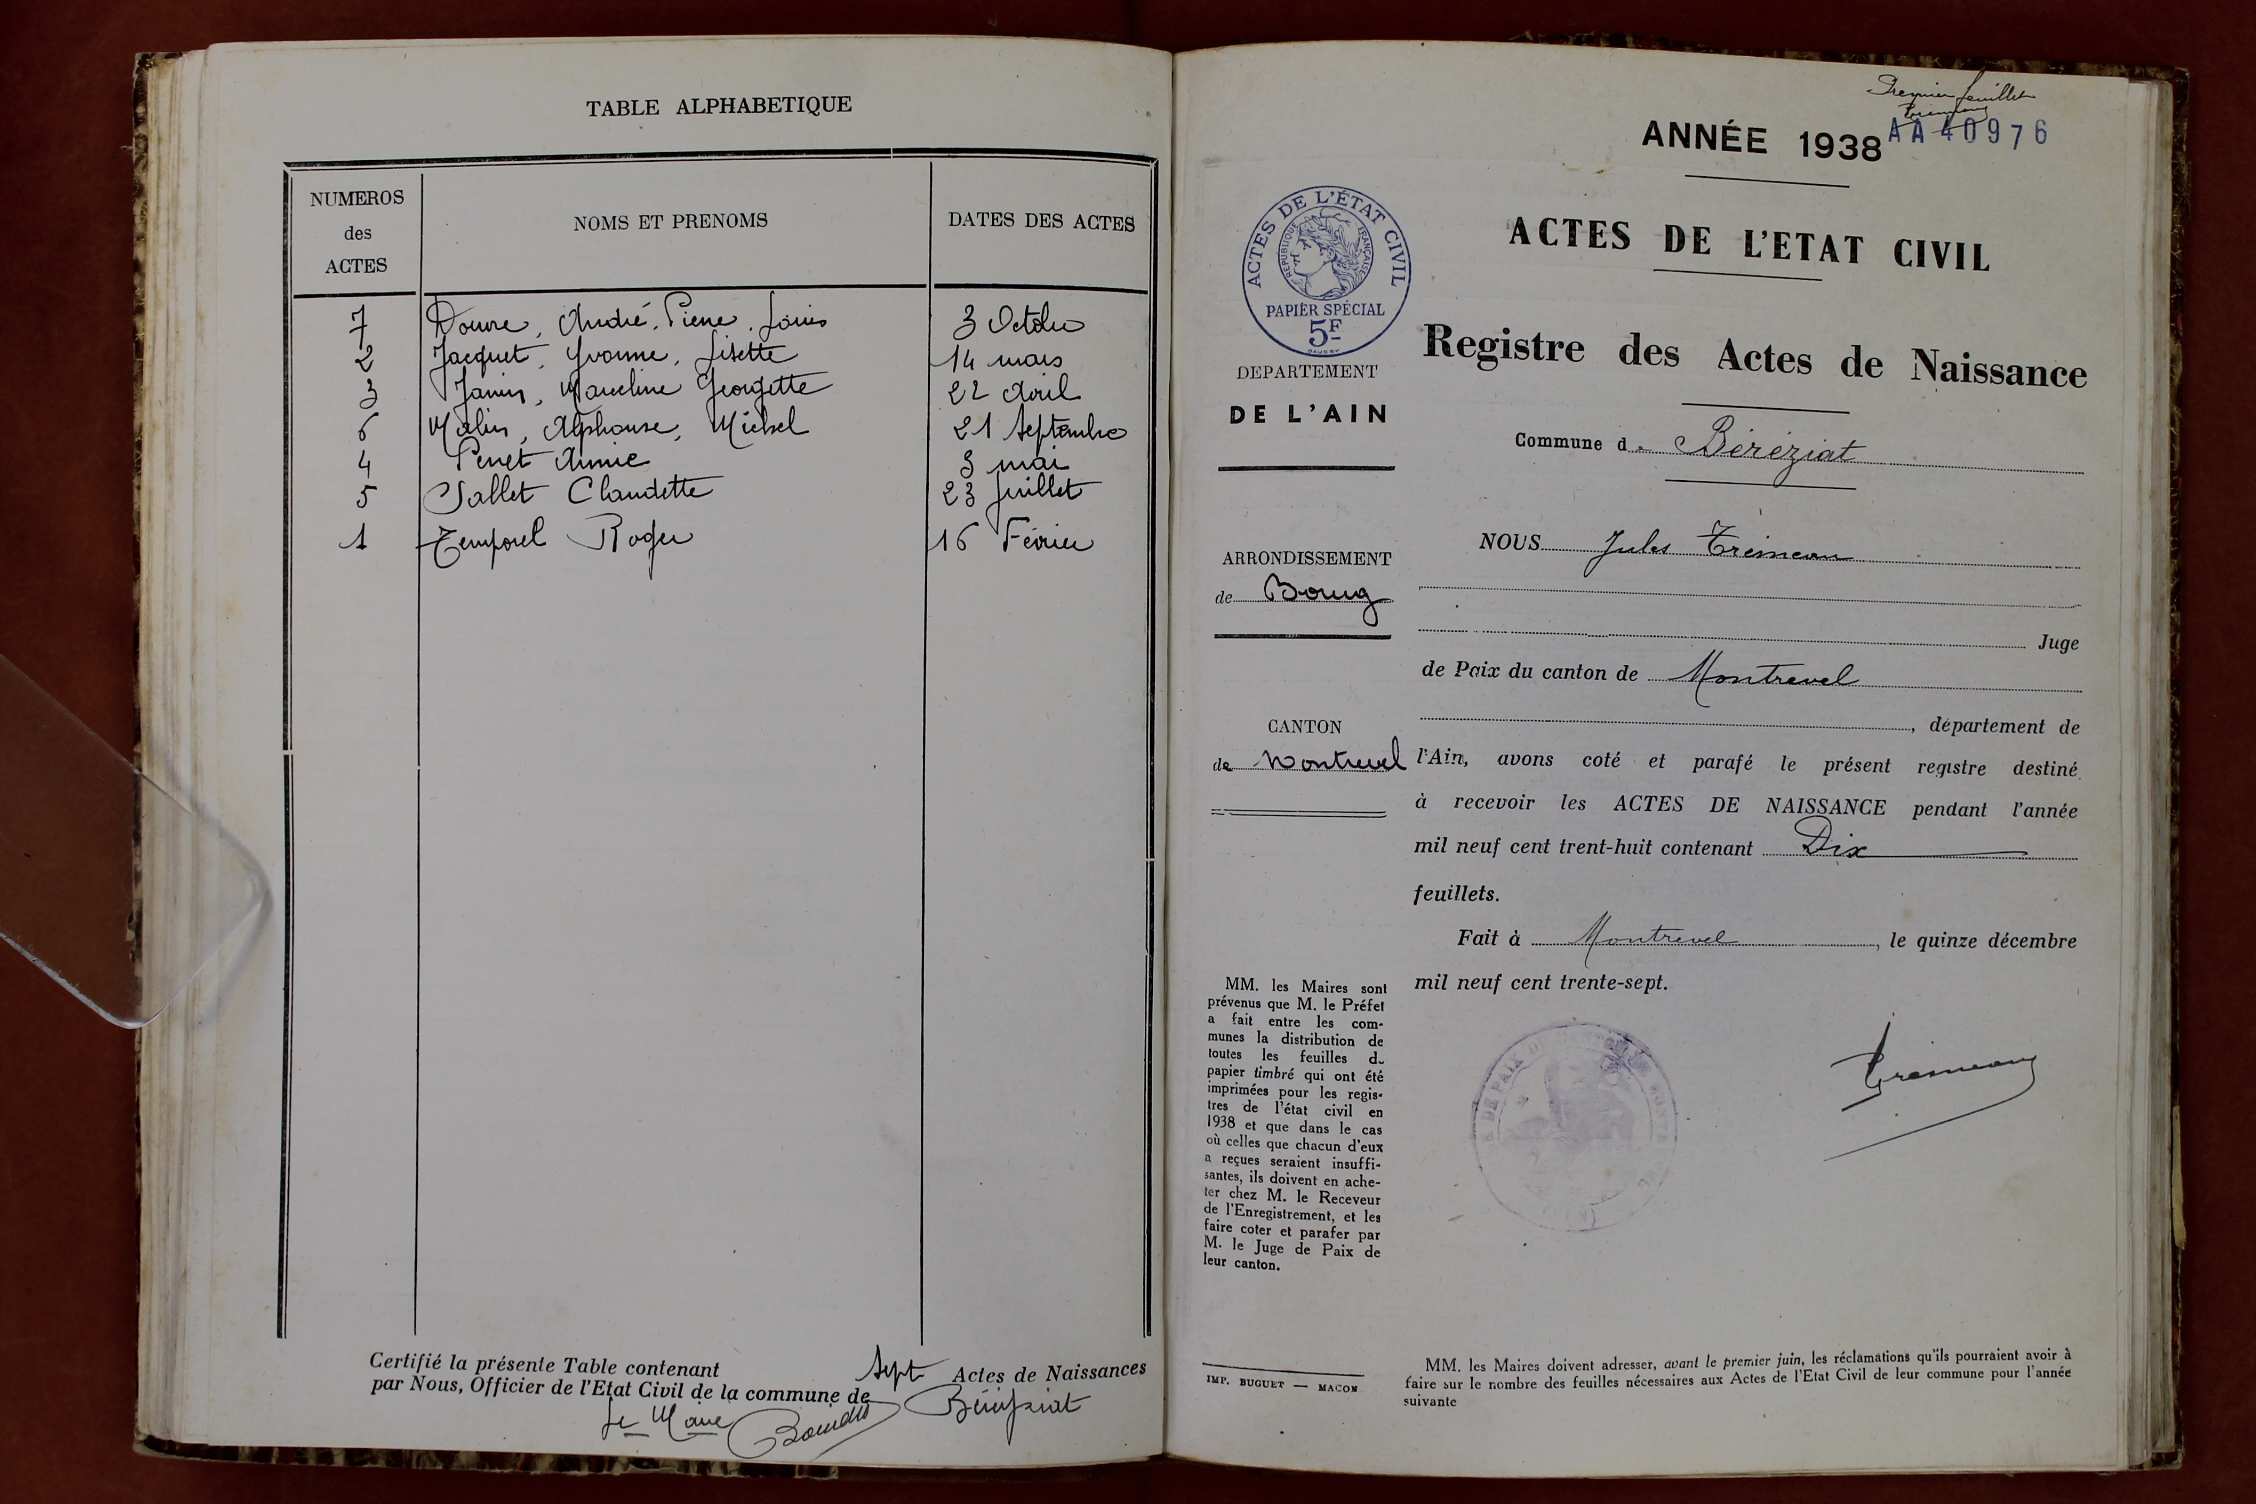 TABLE ALPHABETIQUE
NUMEROS
des
ACTES
NOMS ET PRENOMS
DATES DES ACTES
7 Douvre, André, Pierre, Louis 3 Octobre
2 Jacquet, Yvonne, Lisette 14 mars
3 Janin, Marceline Georgette 22 Avril
6 Malin, Alphonse, Michel 21 Septembre
4 Penet Annie 3 mai
5 Sallet Claudette 23 Juillet
1 Temporel Roger 16 Février
Certifié la présente Table contenant Sept Actes de Naissances
par Nous, Officier de l'Etat Civil de la commune de Béréziat
Le Maire
Premier feuillet
ANNÉE 1938
AA 40976
ACTES DE L'ÉTAT CIVIL
REPUBLIQUE FRANÇAISE
PAPIER SPÉCIAL
5F
ACTES DE L'ETAT CIVIL
Registre des Actes de Naissance
Commune d Béréziat
DEPARTEMENT
DE L'AIN
ARRONDISSEMENT
de Bourg
CANTON
de Montrevel
NOUS Jules Trémeau
Juge
de Paix du canton de Montrevel
, département de
l'Ain, avons coté et parafé le présent registre destiné
à recevoir les ACTES DE NAISSANCE pendant l'année
mil neuf cent trent-huit contenant Dix
feuillets.
Fait à Montrevel, le quinze décembre
mil neuf cent trente-sept.
Trémeau
MM. les Maires sont
prévenus que M. le Préfet
a fait entre les com-
munes la distribution de
toutes les feuilles de
papier timbré qui ont été
imprimées pour les regis-
tres de l'état civil en
1938 et que dans le cas
où celles que chacun d'eux
a reçues seraient insuffi-
santes, ils doivent en ache-
ter chez M. le Receveur
de l'Enregistrement, et les
faire coter et parafer par
M. le Juge de Paix de
leur canton.
IMP. BUGUET — MACON
MM. les Maires doivent adresser, avant le premier juin, les réclamations qu'ils pourraient avoir à
faire sur le nombre des feuilles nécessaires aux Actes de l'Etat Civil de leur commune pour l'année
suivante